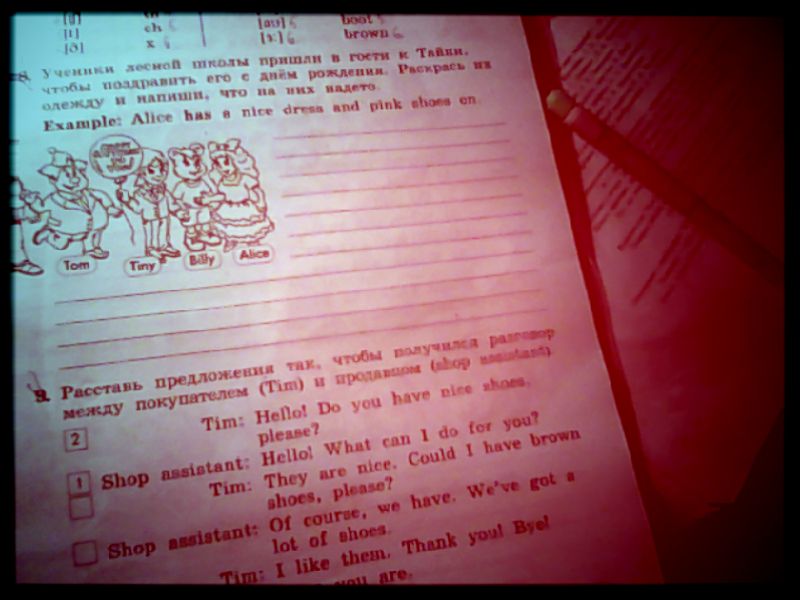 [ɪ] ch [aʊ] boot
[ð] x [ɔ:] brown
8. Ученики лесной школы пришли в гости к Тайни,
чтобы поздравить его с днём рождения. Раскрась их
одежду и напиши, что на них надето.
Example: Alice has a nice dress and pink shoes on.
Tom Tiny Billy Alice
9. Расставь предложения так, чтобы получился разговор
между покупателем (Tim) и продавцом (shop assistant).
2 Tim: Hello! Do you have nice shoes,
please?
1 Shop assistant: Hello! What can I do for you?
Tim: They are nice. Could I have brown
shoes, please?
Shop assistant: Of course, we have. We've got a
lot of shoes.
Tim: I like them. Thank you! Bye!
you are.